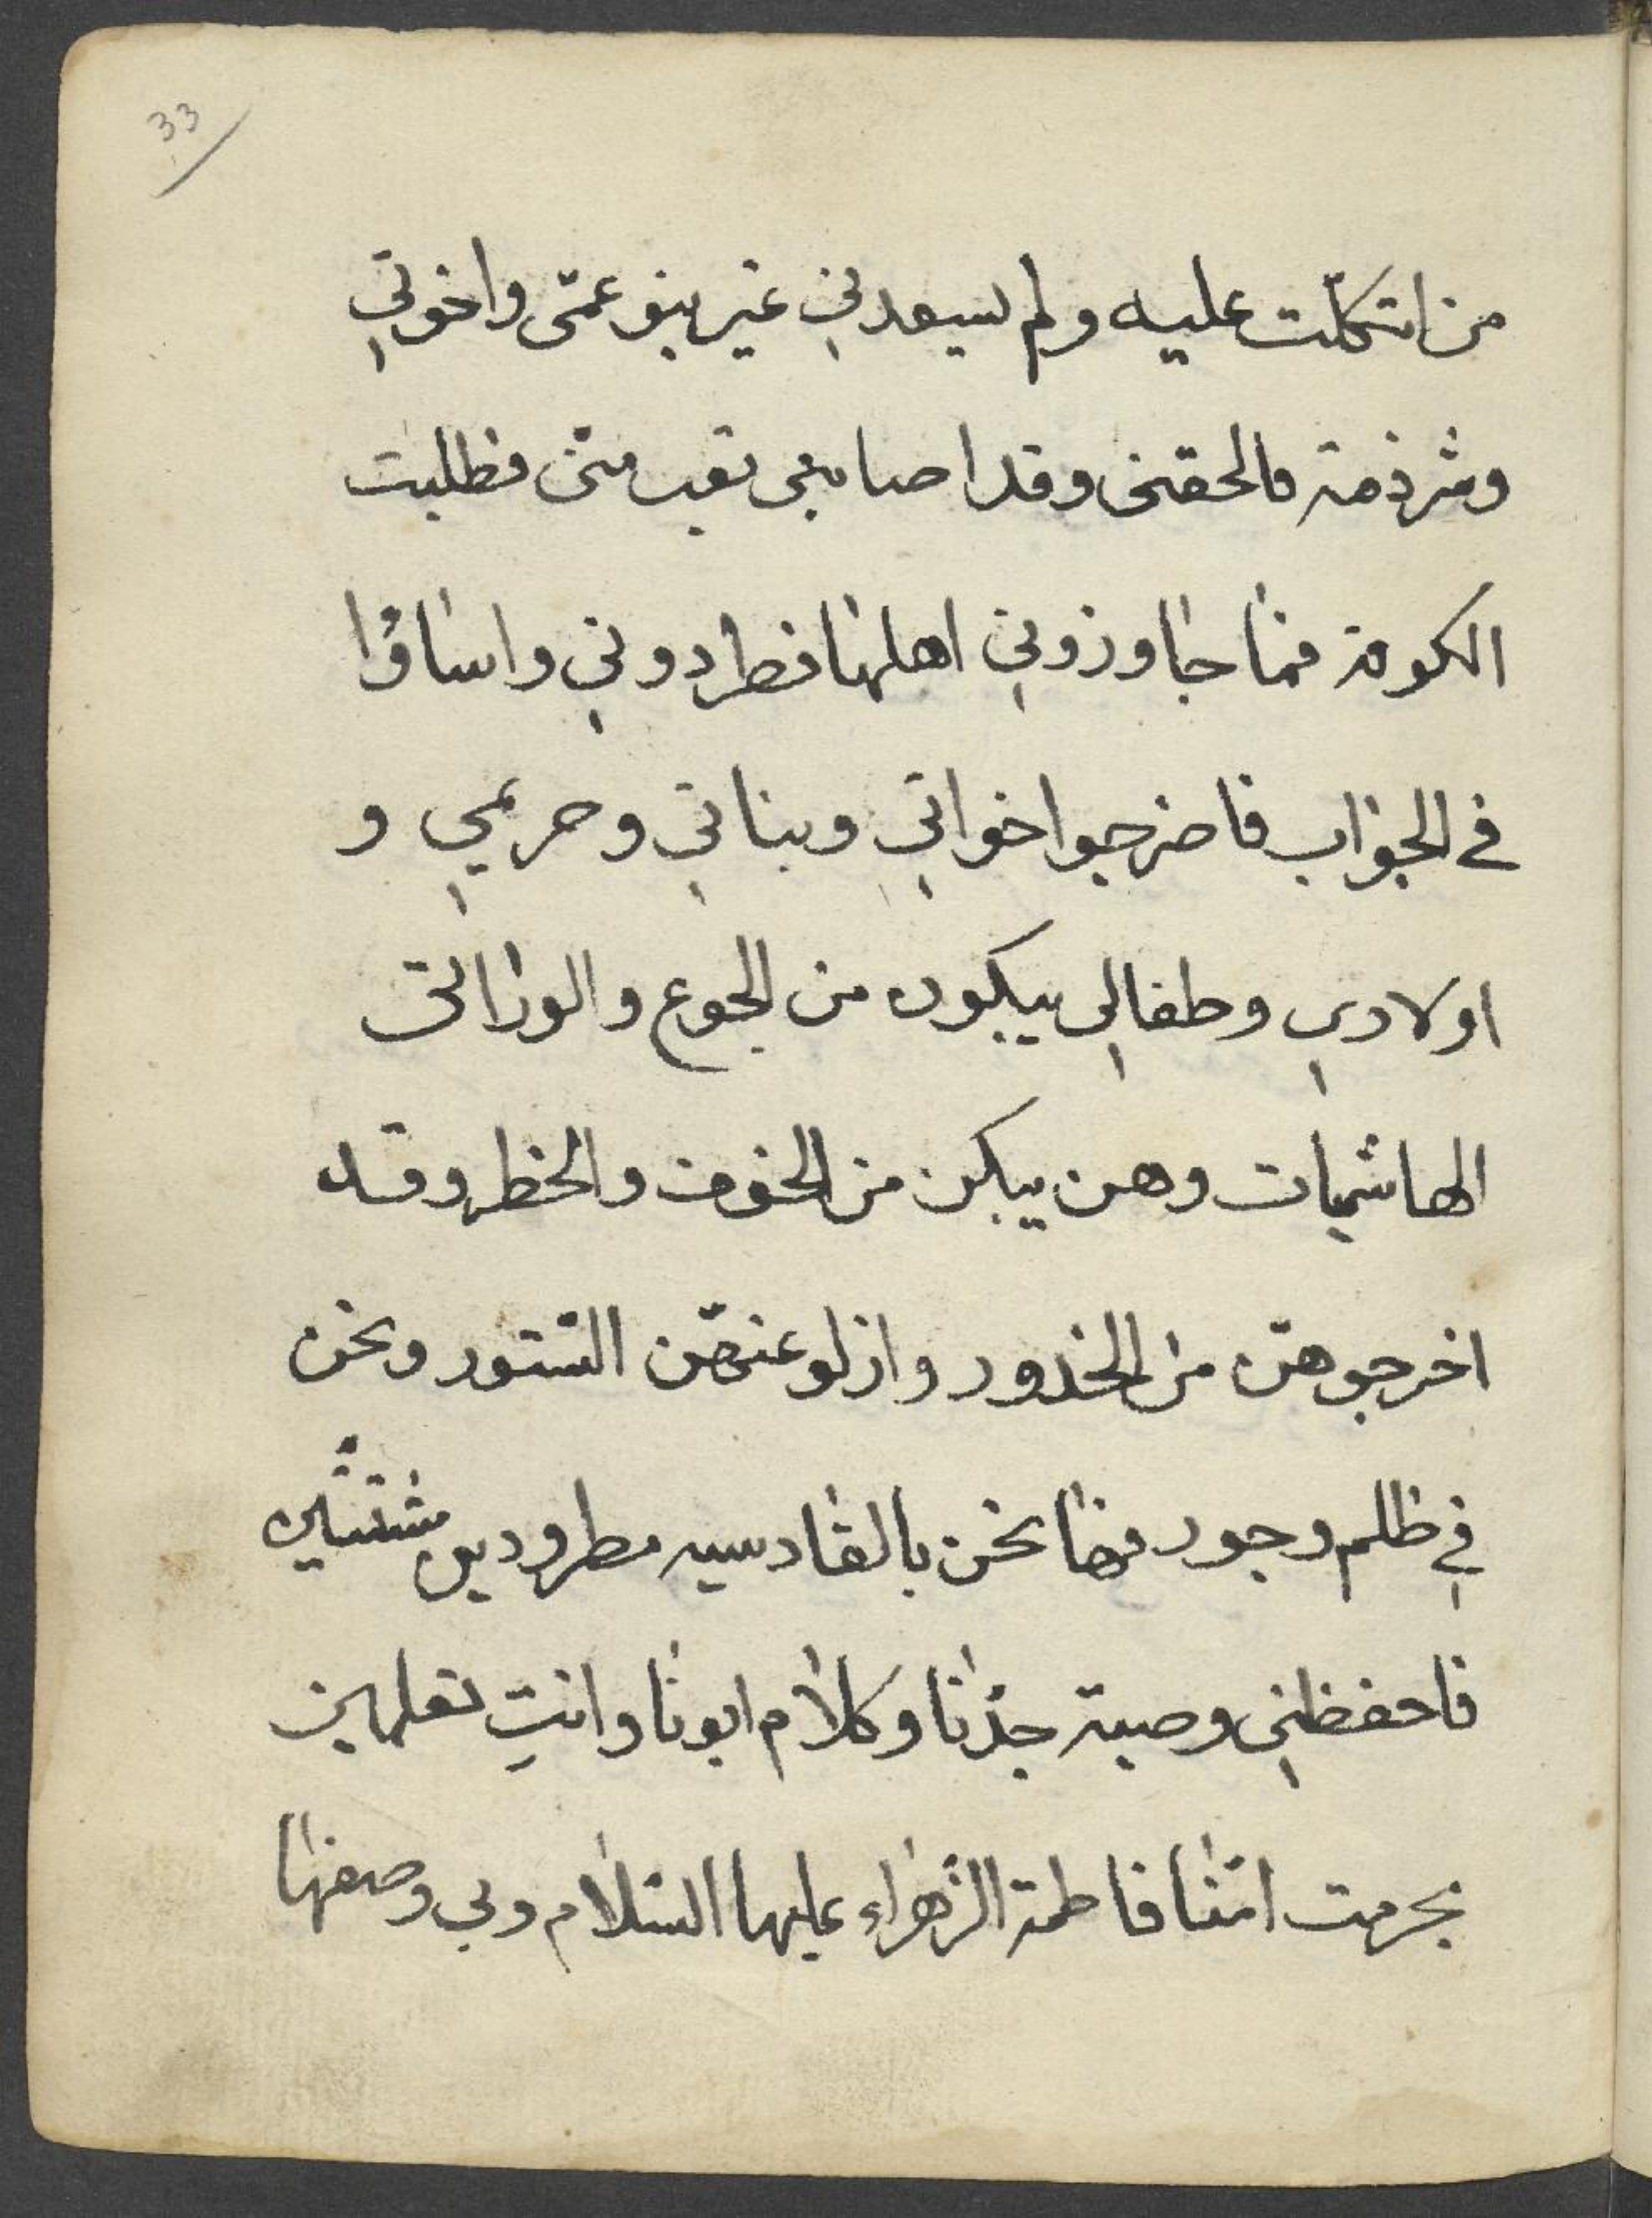 33
من اتكلت عليه ولم يسعدني غير بنو عمّى واخوتي
وشرذمة مالحقنى وقد اصابنى تعب منّى فطلبت
الكوفة فما جاوزوني اهلها فطردوني واساؤا
في الجواب فاخرجوا اخواتي وبناتي وحريمي و
اولادي وطفالي يبكون من الجوع والوزا التى
الهاشميات وهن يبكن من الخوف والخطر وقد
اخرجوهنّ من الخدور وازلو عنهنّ السّتور ونحن
في ظلم وجور فها نحن بالقادسيه مطرودين مشتّتين
فاحفظني وصية جدّنا وكلام ابونا وانتِ تعلمين
بحرمت امّنا فاطمة الزّهراء عليها السّلام وبى وصفها